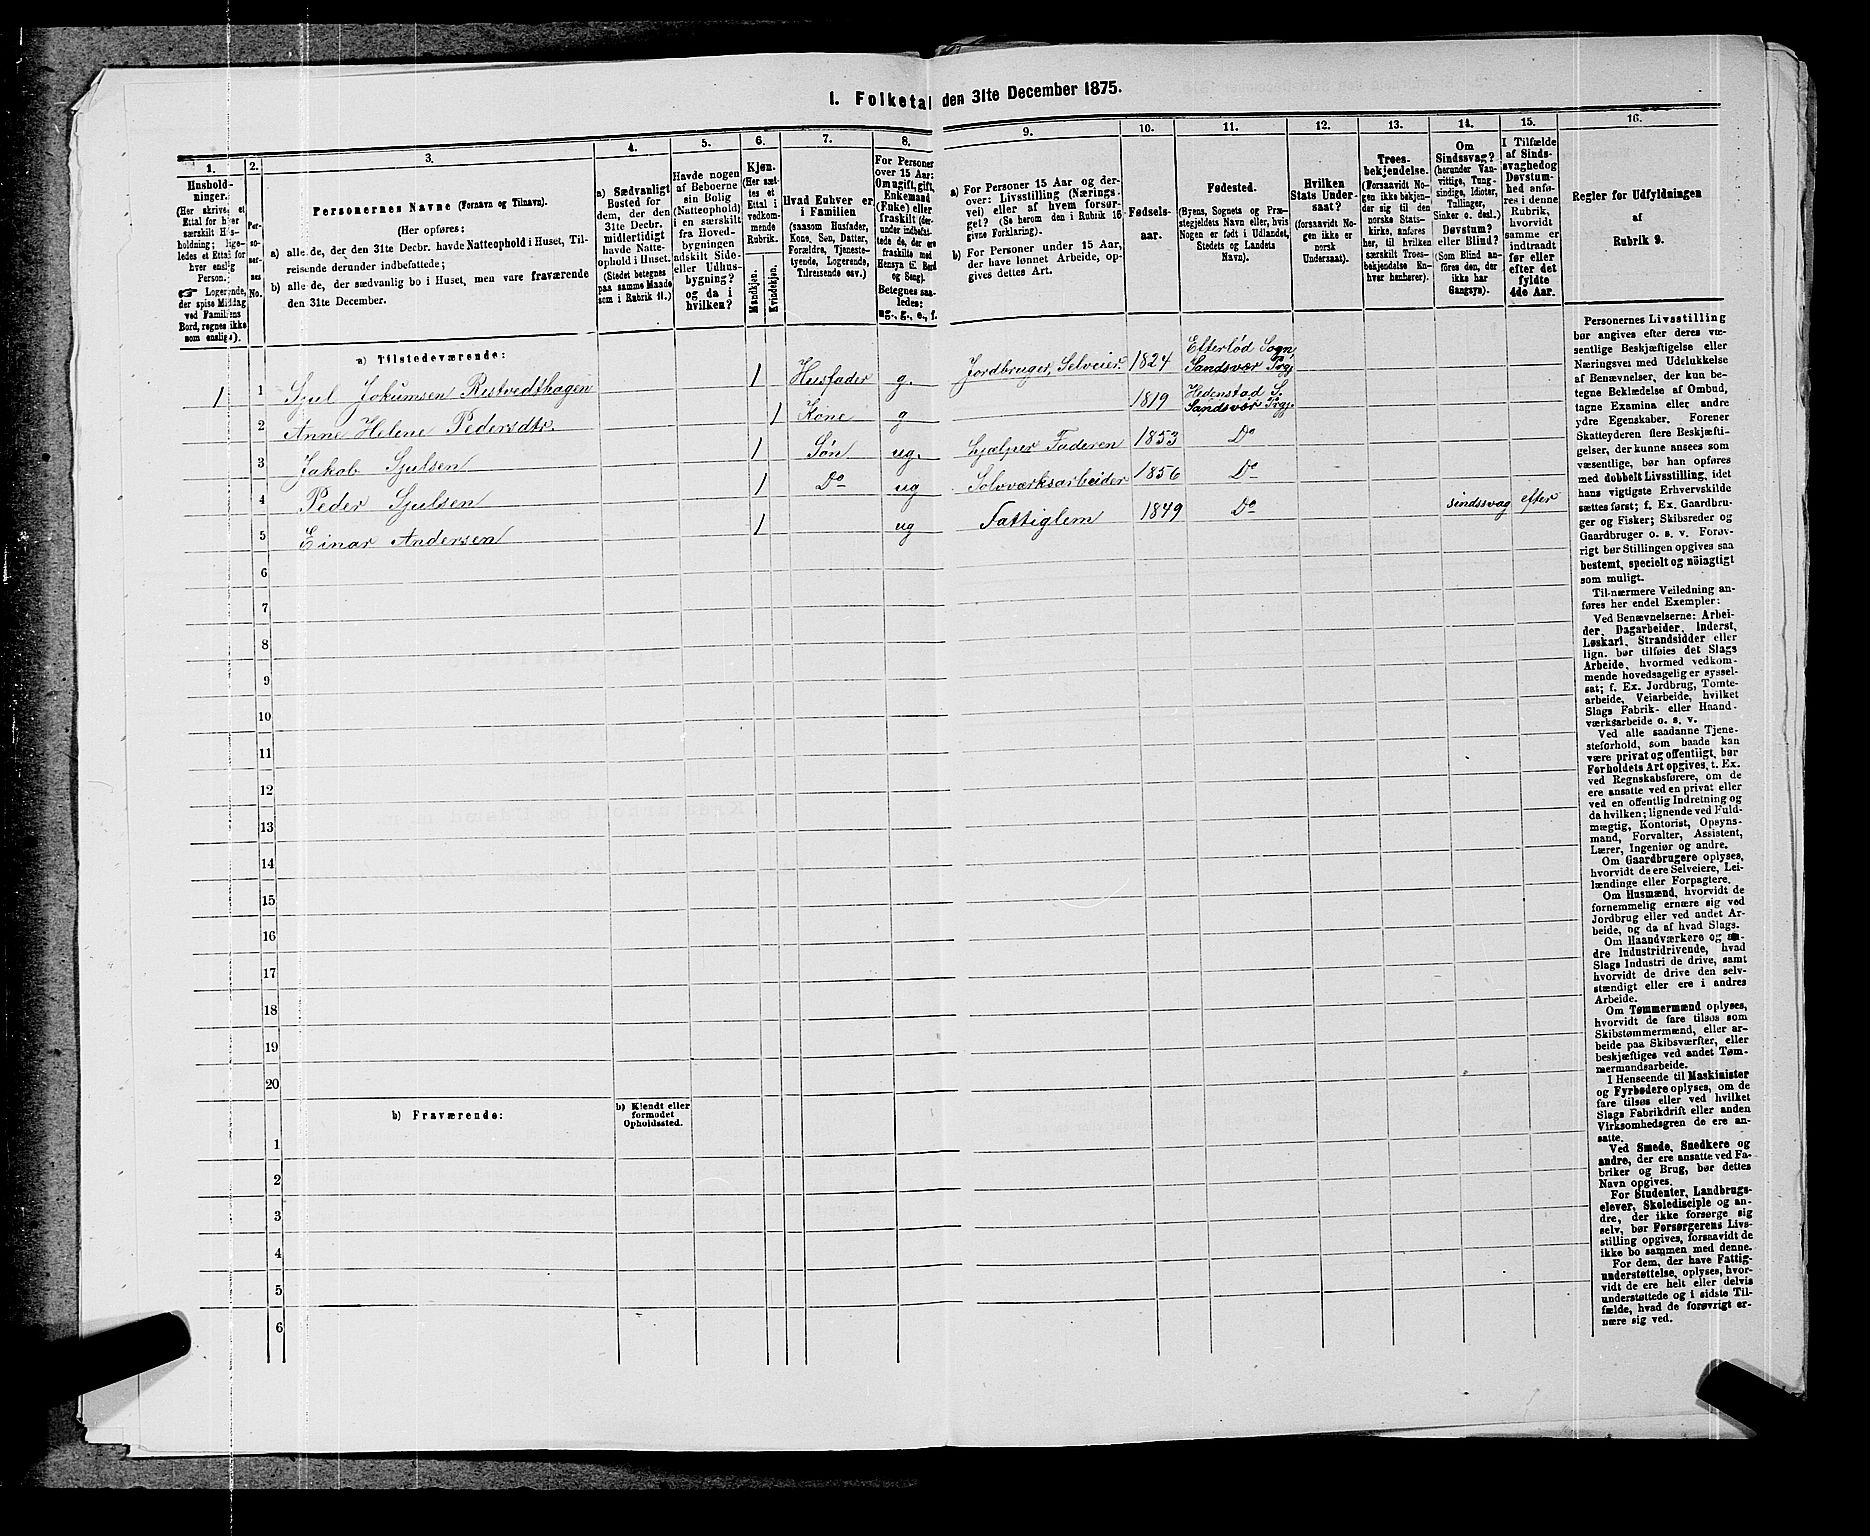 I. Folketal den 31te December 1875.
1. 2. 3. 4. 5. 6. 7. 8. 9. 10. 11. 12. 13. 14. 15. 16.
Husholdninger.
(Her skrives et
Ettal for hver
særskilt Husholdning;
ligeledes et Ettal for
hver enslig
Person.
☞ Logerende,
der spise Middag
ved Familiens
Bord, regnes ikke
som enslige).
Personernes No.
Personernes Navne (Fornavn og Tilnavn).
(Her opføres:
a) alle de, der den 31te Decbr. havde Natteophold i Huset, Tilreisende
derunder indbefattede;
b) alle de, der sædvanlig bo i Huset, men vare fraværende
den 31te December.
a) Sædvanligt
Bosted for
dem, der den
31te Decbr.
midlertidigt
havde Natteophold
i Huset.
(Stedet betegnes
paa samme Maade
som i Rubrik 11.)
Havde nogen
af Beboerne
sin Bolig
(Natteophold)
i en særskilt
fra Hovedbygningen
adskilt Side-
eller Udhusbygning?
og da i
hvilken?
Kjøn.
(Her sættes
et
Ettal i
vedkommende
Rubrik.
Mandkjøn.
Kvindekjøn.
Hvad Enhver er
i Familien
(saasom Husfader,
Kone, Søn, Datter,
Forældre, Tjenestetyende,
Logerende,
Tilreisende osv.)
For Personer
over 15 Aar:
Om ugift, gift,
Enkemand
(Enke) eller
fraskilt (derunder
indbefattede
de, der ere
fraskilte med
Hensyn til Bord
og Seng).
Betegnes saaledes:
ug., g., e., f.
a) For Personer 15 Aar og derover:
Livsstilling (Næringsvei)
eller af hvem forsørget?
(Se herom den i Rubrik 16
givne Forklaring).
b) For Personer under 15 Aar,
der have lønnet Arbeide, opgives
dettes Art.
Fødselsaar.
Fødested.
(Byens, Sognets og Præstegjeldets
Navn eller, hvis
Nogen er født i Udlandet,
Stedets og Landets
Navn).
Hvilken
Stats Undersaat?
(forsaavidt Nogen
ikke er
norsk
Undersaat).
Troesbekjendelse.
(Forsaavidt Nogen
ikke bekjender
sig til den
norske Statskirke,
anføres
her, til hvilken
særskilt Troesbekjendelse
Enhver
henhører).
Om
Sindssvag?
(herunder Vanvittige,
Tungsindige,
Idioter,
Tullinger,
Sinker o. desl.)
Døvstum?
eller Blind?
(Som Blind anføres
den, der
ikke har
Gangsyn).
I Tilfælde
af Sindssvaghed og
Døvstumhed
anføres
i denne
Rubrik,
hvorvidt
samme er
indtraadt
før eller
efter det
fyldte
4de Aar.
Regler for Udfyldningen
af
Rubrik 9.
a) Tilstedeværende:
1 1 Sjul Jokumsen Ristvedthagen 1 Husfader g. Jordbruger, Selveier. 1824 Efterlød Sogn, Sandsvær Prgj.
2 Anne Helene Pedersdtr. 1 Kone g 1819 Hedenstad S. Sandsvær Prgj.
3 Jakob Sjulsen 1 Søn ug. hjælper Faderen 1853 Do
4 Peder Sjulsen 1 Do ug Sølvværksarbeider 1856 Do
5 Einar Andersen 1 ug Fattiglem 1849 Do sindssvag efter
6
7
8
9
10
11
12
13
14
15
16
17
18
19
20
b) Fraværende:
b) Kjendt eller
formodet
Opholdssted.
1
2
3
4
5
6
Personernes Livsstilling
bør angives efter deres væsentlige
Beskjæftigelse eller
Næringsvei med Udelukkelse
af Benævnelser, der kun betegne
Beklædelse af Ombud,
tagne Examina eller andre
ydre Egenskaber. Forener
Skatteyderen flere Beskjæftigelser,
der kunne ansees som
væsentlige, bør han opføres
med dobbelt Livsstilling, idet
hans vigtigste Erhvervskilde
sættes først; f. Ex. Gaardbruger
og Fisker; Skibsreder og
Gaardbruger o. s. v. Forøvrigt
bør Stillingen opgives saa
bestemt, specielt og nöiagtigt
som muligt.
Til nærmere Veiledning anføres
her endel Exempler:
Ved Benævnelserne: Arbeider,
Dagarbeider, Inderst,
Løskarl, Strandsidder eller
lign. bør tilføies det Slags
Arbeide, hvormed vedkommende
hovedsagelig er sysselsat;
f. Ex. Jordbrug, Tomtearbeide,
Veiarbeide, hvilket
Slags Fabrik- eller Haandværksarbeide
o. s. v.
Ved alle saadanne Tjenesteforhold,
som baade kan
være privat og offentligt, bør
Forholdets Art opgives, t. Ex.
ved Regnskabsførere, om de
ere ansatte ved en privat eller
ved en offentlig Indretning og
da hvilken; lignende ved Fuldmægtig,
Kontorist, Opsynsmand,
Forvalter, Assistent,
Lærer, Ingeniør og andre.
Om Gaardbrugere oplyses,
hvorvidt de ere Selveiere, Leilændinge
eller Forpagtere.
Om Husmænd, hvorvidt de
fornemmelig ernære sig ved
Jordbrug eller ved andet Arbeide,
og da af hvad Slags.
Om Haandværkere og andre
Industridrivende, hvad
Slags Industri de drive, samt
hvorvidt de drive den selvstændigt
eller ere i andres
Arbeide.
Om Tømmermænd oplyses,
hvorvidt de fare tilsøs som
Skibstømmermænd, eller arbeide
paa Skibsværfter, eller
beskjæftiges ved andet Tømmermandsarbeide.
I Henseende til Maskinister
og Fyrbødere oplyses, om de
fare tilsøs eller ved hvilket
Slags Fabrikdrift eller anden
Virksomhedsgren de ere ansatte.
Ved Smede, Snedkere og
andre, der ere ansatte ved Fabriker
og Brug, bør dettes
Navn opgives.
For Studenter, Landbrugselever,
Skoledisciple og andre,
der ikke forsørge sig
selv, bør Forsørgerens Livsstilling
opgives, forsaavidt de
ikke bo sammen med denne.
For dem, der have Fattigunderstøttelse,
oplyses, hvorvidt
de ere helt eller delvis
understøttede og i sidste Tilfælde,
hvad de forøvrigt ernære
sig ved.